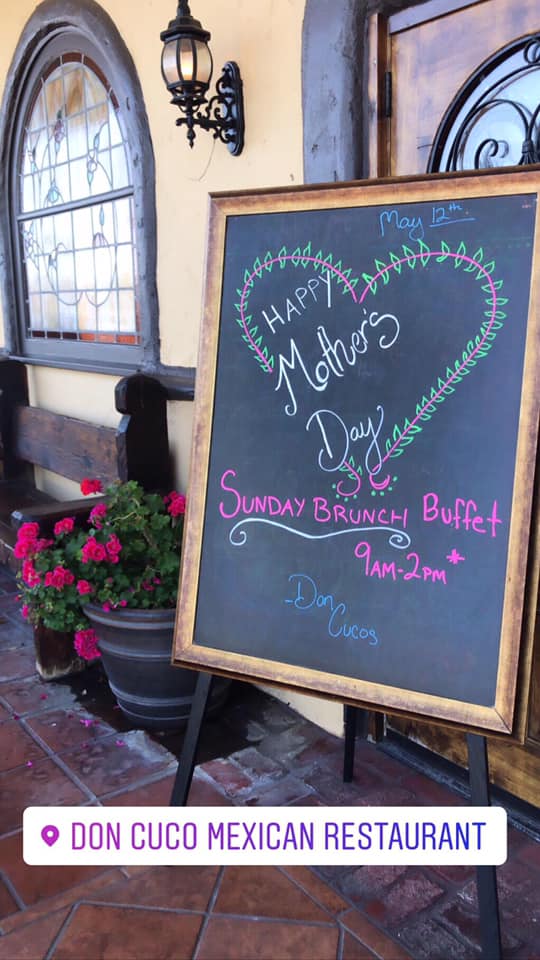 May 12th.
HAPPY
Mother's
Day
SUNDAY BRUNCH Buffet
9AM-2PM*
-Don
Cucos
DON CUCO MEXICAN RESTAURANT